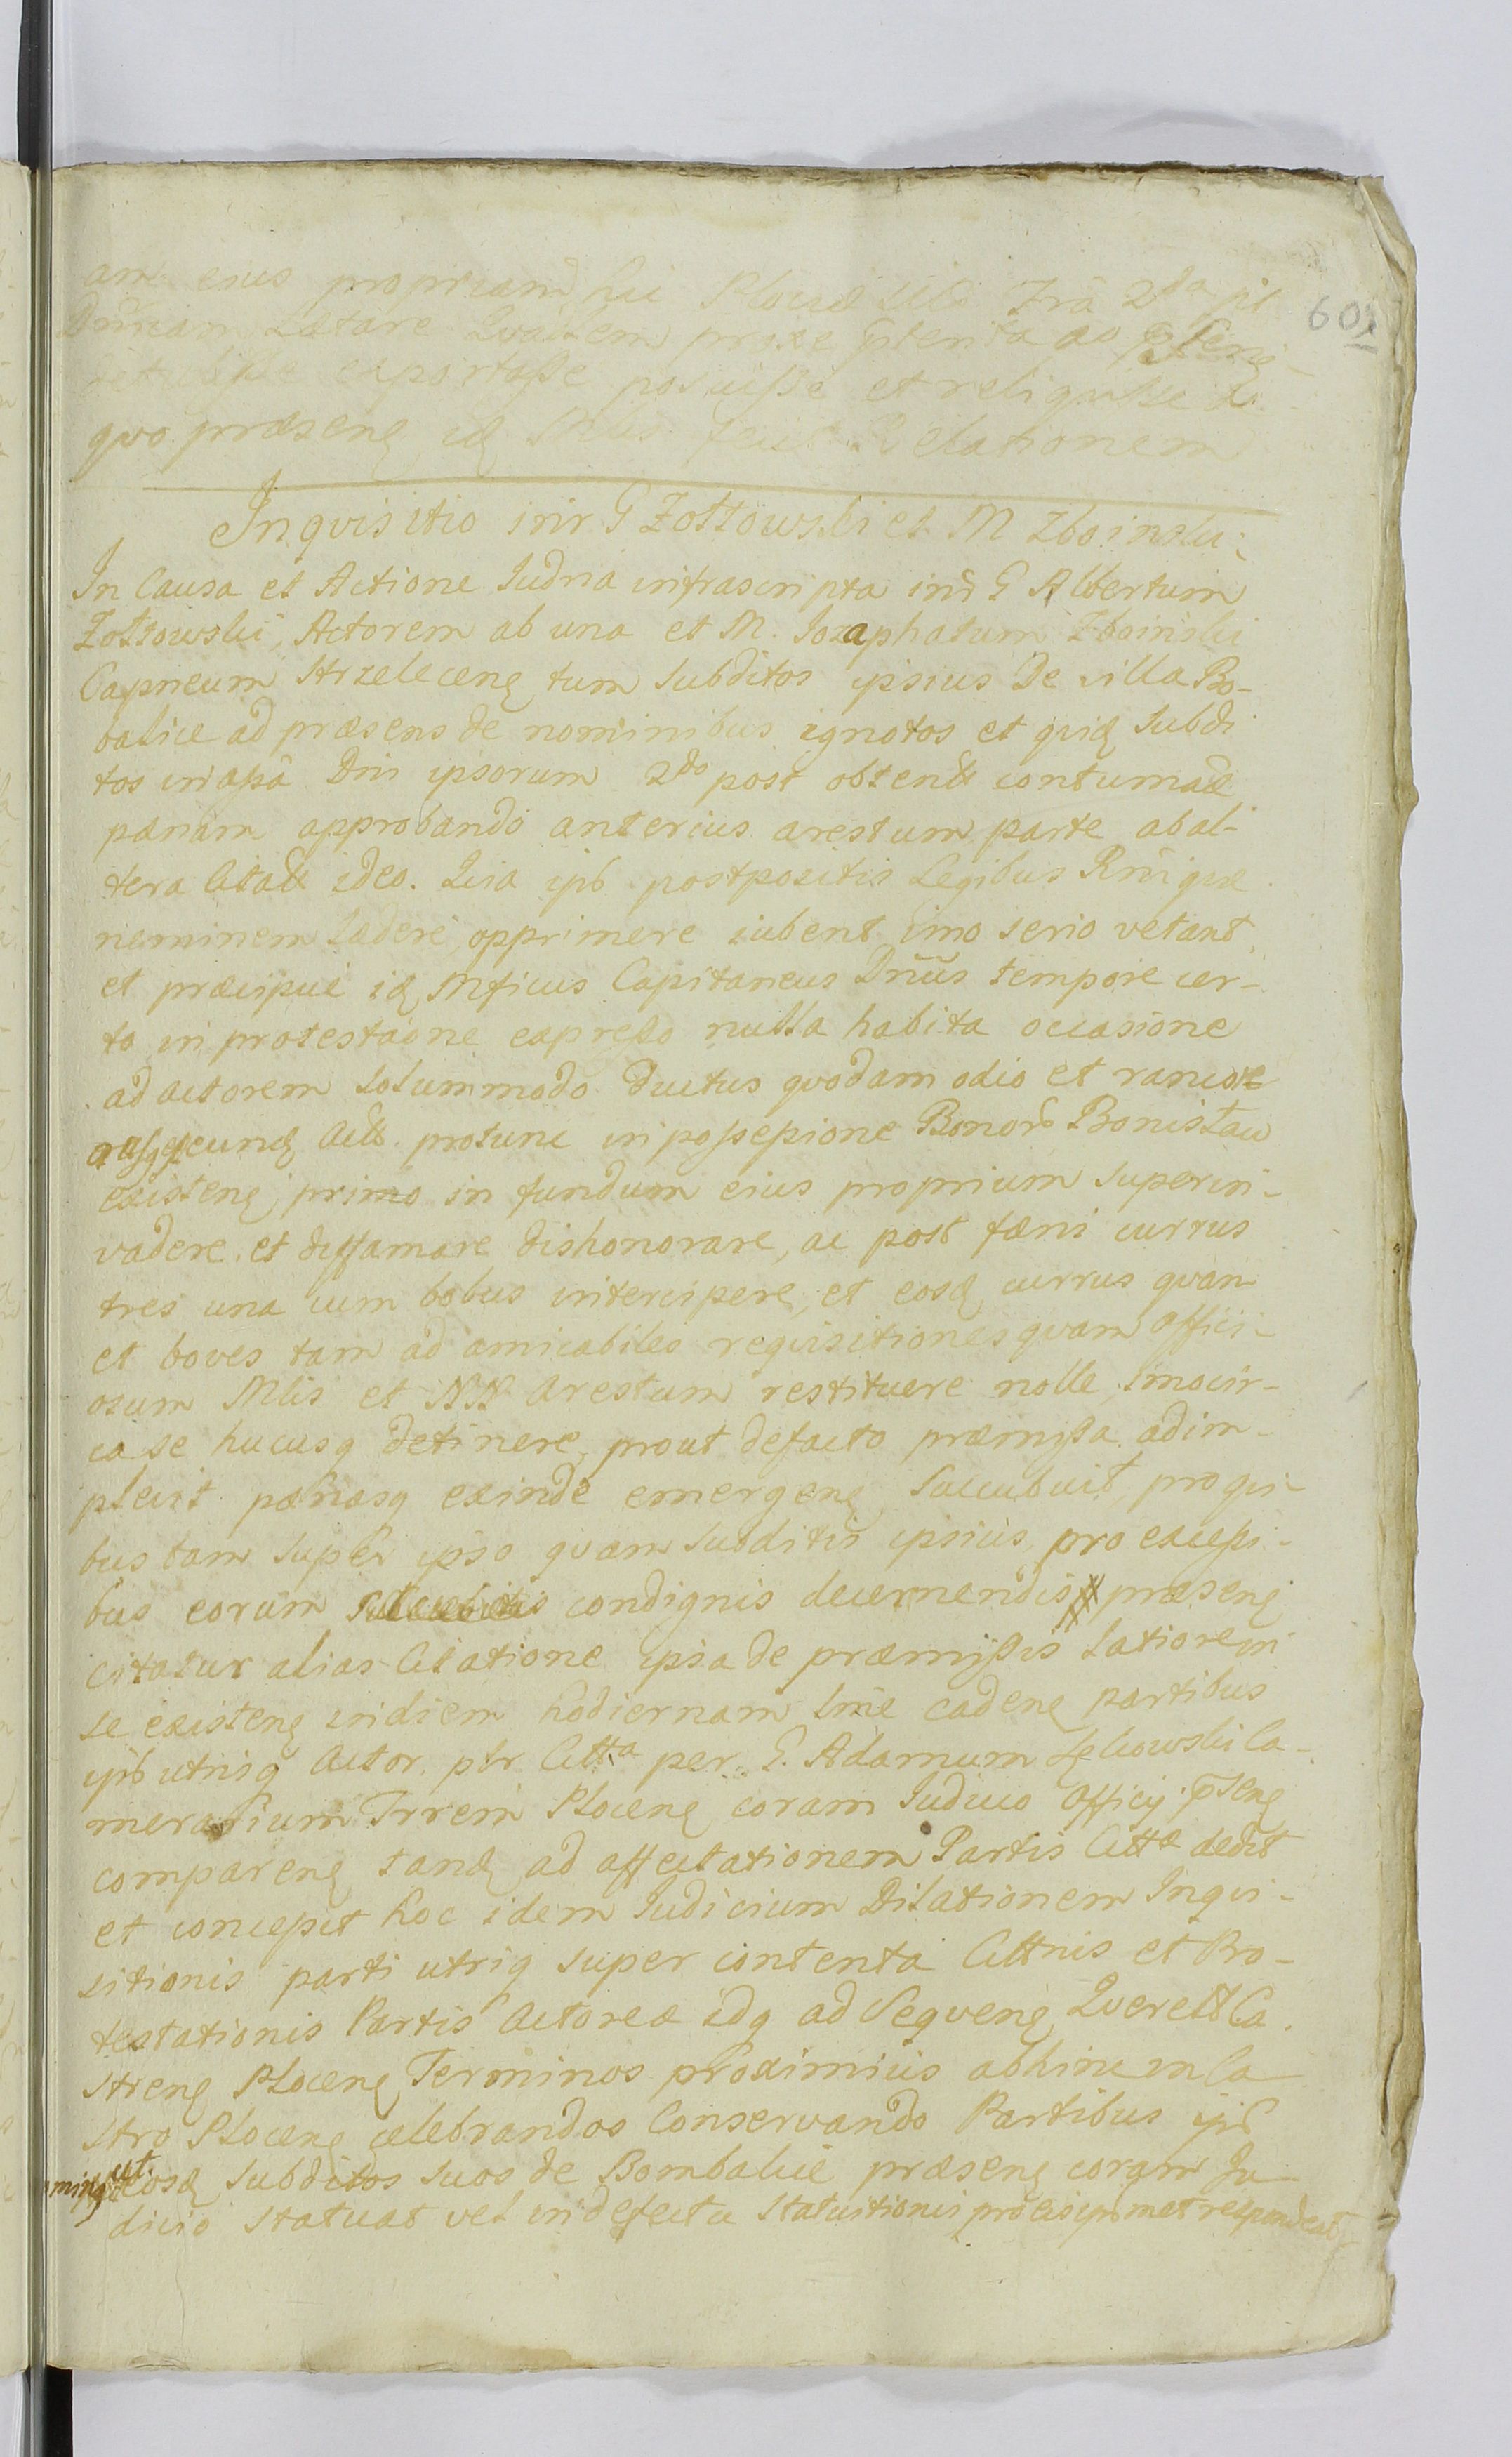 am eius propriam hic Plociæ sibi Fria 2da pt
Dnicam Lætare Qvadlem proxe pterita ao
detulisse exportasse posuisse et reliquisse de
qvo præsens id Mlis fecit Relationem
601
Inqvisitio intr G Zołtowski et M Zboinski
In Causa et Actione Iudria infrascripta intr G Albertum
Zołtowski, Actorem ab una et M. Iozaphatum Zboinski
Capneum Strzelecens tum Subditos ipsius De villa Bo-
balice ad præsens de nominibus ignotos et qvidem Subdi
tos in assa Dni ipsorum 2do post obtentæ contumaæ
pænam approbando anterius arestum parte ab al-
tera Citatæ ideo. Qvia ipsi postpositis Legibus Rni qvæ
neminem lædere, opprimere iubent imo serio vetant,
et præcipue id Mficus Capitaneus Dnus tempore cer-
to in protestaone expresso nulla habita occasione
ad actorem solummodo ductus qvodam odio et rancore
ausus eund Act. protunc in possessione Bonor Bonislaw
existens, primo in fundum eius proprium superin-
vadere et diffamare dishonorare, ac post fæni currus
tres una cum bobus intercipere, et eosd currus qvam
et boves tam ad amicabiles reqvisitiones qvam offici-
osum Mlis et NN Arestum restituere nolle, imo cir-
ca se hucusq detinere, prout defacto præmissa adim-
plevit pænasq exinde emergens succubuit, pro qvi-
bus tam super ipso qvam Subditis ipsius, pro excessi-
bus eorum condignis decernendis præsens
citatur alias Citatione ipsa de præmissis latiorem in
se existens in diem hodiernam lme cadens partibus
ipsi utrisq Actor. ptr Citta per G. Adamum Łękowski Ca-
merarium Trrem Plocens coram Iudicio Officij pntens
comparens tand ad affectationem Partis Cittæ dedit
et concepit hoc idem Iudicium Dilationem Inqvi-
sitionis parti utriq super contenta Cittnis et Pro-
testationis Partis Actoreæ idq ad Seqvens Qverell Ca-
strens Plocens Terminos proximius abhinc in Ca-
stro Plocens celebrandos Conservando Partibus ipsi
ut eosd Subditos Suos de Bombalice præsens coram Iu-
dicio Statuat vel in defectu Statuitionis pro eis ipsimet respondeat